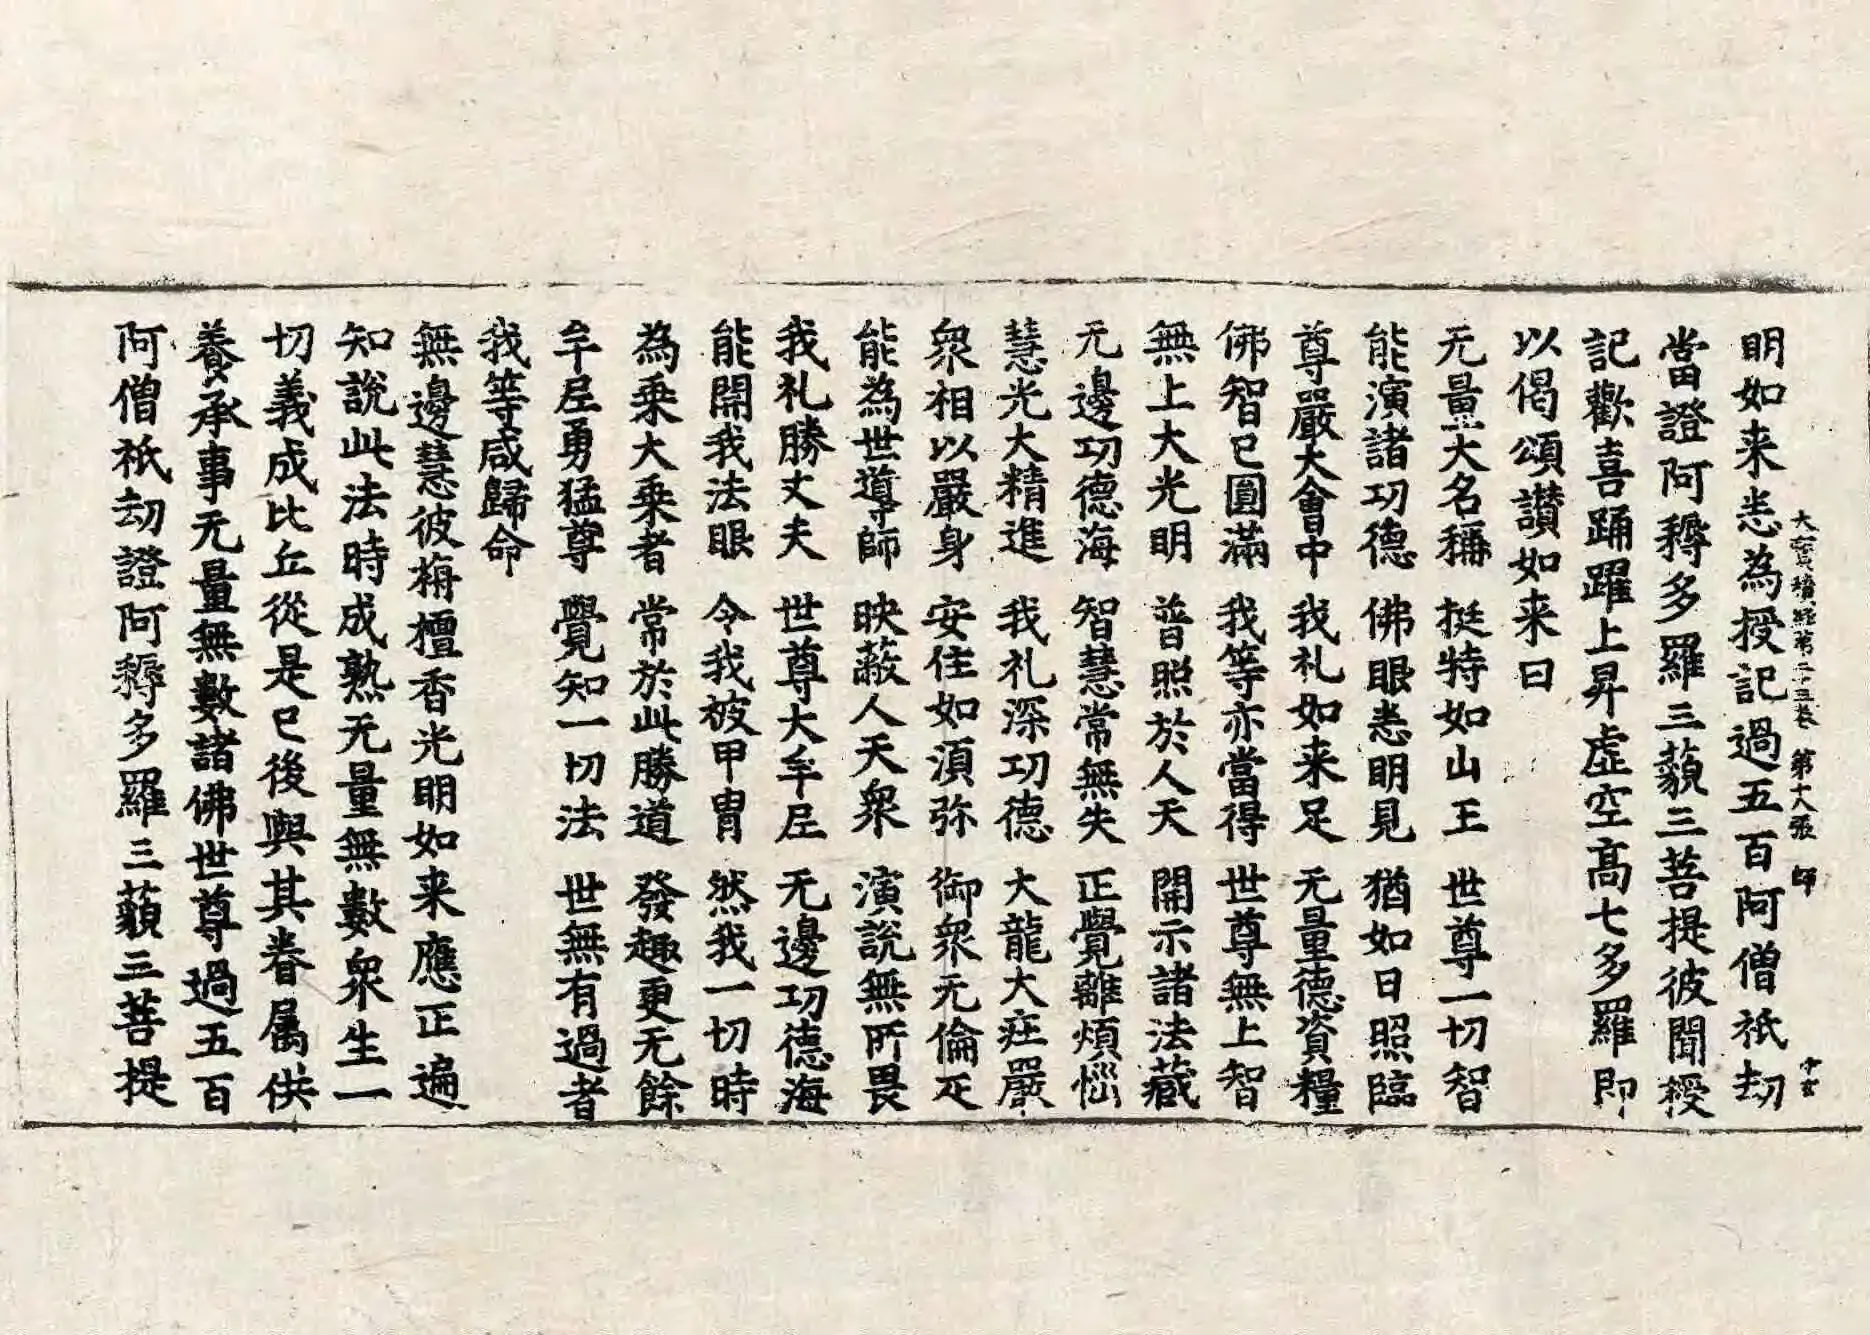 大寶積經第二十三卷 第十八張 師
明如来恙為授記過五百阿僧祇劫
當證阿耨多羅三藐三菩提彼聞授
記歡喜踊躍上昇虛空高七多羅即
以偈頌讃如来曰
无量大名稱 挺特如山王 世尊一切智
能演諸功德 佛眼恙明見 猶如日照臨
尊嚴大會中 我礼如来足 无量德資糧
佛智已圓滿 我等亦當得 世尊無上智
無上大光明 普照於人天 開示諸法藏
无邊功德海 智慧常無失 正覺離煩惱
慧光大精進 我礼深功德 大龍大莊嚴
衆相以嚴身 安住如湏弥 御衆无倫疋
能為世導師 映蔽人天衆 演說無所畏
我礼勝丈夫 世尊大牟尼 无邊功德海
能開我法眼 令我被甲冑 然我一切時
為乘大乘者 常於此勝道 發趣更无餘
牟尼勇猛尊 覺知一切法 世無有過者
我等咸歸命
無邊慧彼栴檀香光明如来應正遍
知說此法時成熟无量無數衆生一
切義成比丘從是已後與其眷属供
養承事无量無數諸佛世尊過五百
阿僧祇劫證阿耨多羅三藐三菩提